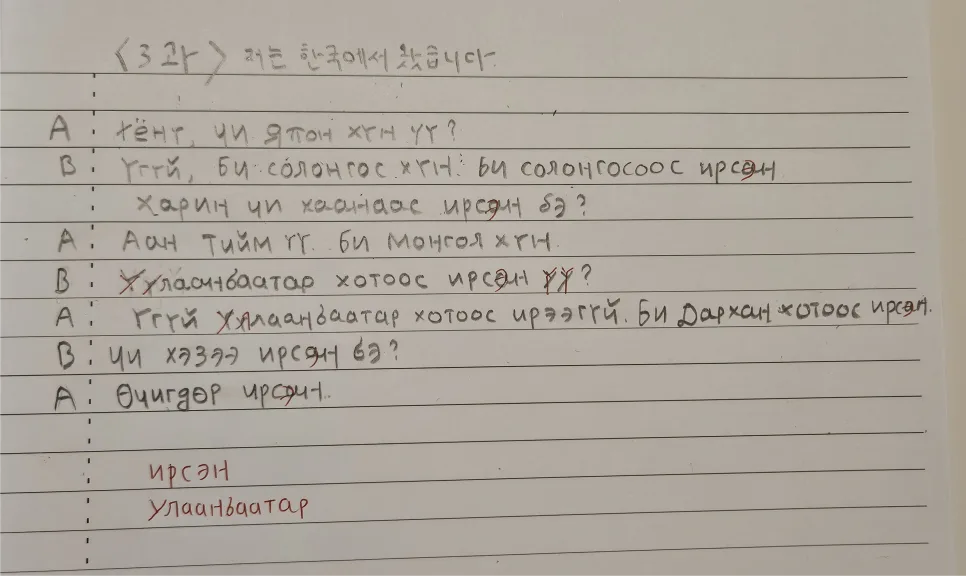 <3과> 저는 한국에서 왔습니다.
A : Хёнг, чи япон хүн үү?
B : Үгүй, би солонгос хүн. Би солонгосоос ирсэн
Харин чи хаанаас ирсэн бэ?
A : Аан тийм үү. Би монгол хүн.
B : Улаанбаатар хотоос ирсэн үү?
A : Үгүй Улаанбаатар хотоос ирээгүй. Би Дархан хотоос ирсэн.
B : Чи хэзээ ирсэн бэ?
A : Өчигдөр ирсэн.
ирсэн
Улаанбаатар